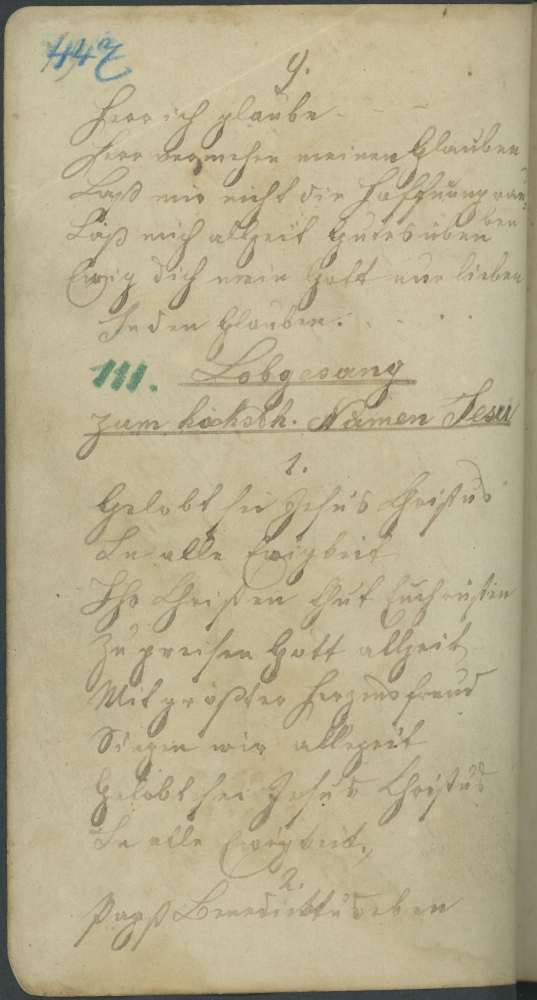 447
9.
Herr ich glaube
Herr vermehre meinen Glauben
Laß mir nicht die Hoffnung rau-
ben
Laß mich allzeit gutes üben
Ewig dich mein Gott nur lieben
In den Glauben.
III. Lobgesang
zum höchsth. Namen Jesu
1.
Gelobt sei Jesus Christus
In alle Ewigkeit
Ihr Christen thut Euch rüsten
Zu preisen Gott allzeit
Mit größter Herzensfreud
Singen wir allezeit
Gelobt sei Jesus Christus
In alle Ewigkeit,
2.
Papst Benedicktus eben